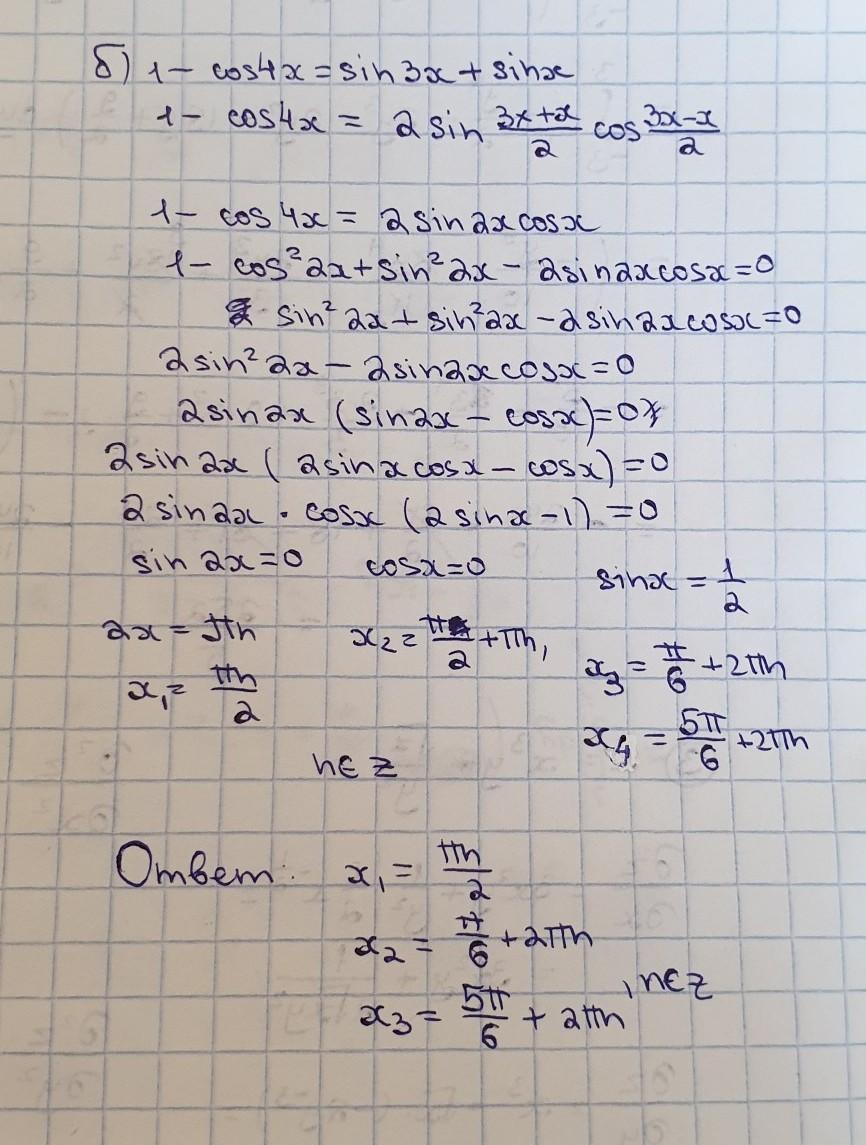 б) 1 - cos4x = sin3x + sinx
1 - cos4x = 2 sin (3x+x)/2 cos (3x-x)/2
1 - cos4x = 2sin2xcosx
1 - cos²2x + sin²2x - 2sin2xcosx = 0
sin²2x + sin²2x - 2sin2xcosx = 0
2sin²2x - 2sin2xcosx = 0
2sin2x (sin2x - cosx) = 0
2sin2x (2sinxcosx - cosx) = 0
2sin2x · cosx (2sinx - 1) = 0
sin2x = 0 cosx = 0 sinx = 1/2
2x = πn x₂ = π/2 + πn, x₃ = π/6 + 2πn
x₁ = πn/2 x₄ = 5π/6 + 2πn
n∈z
Ответ: x₁ = πn/2
x₂ = π/6 + 2πn
x₃ = 5π/6 + 2πn, n∈z